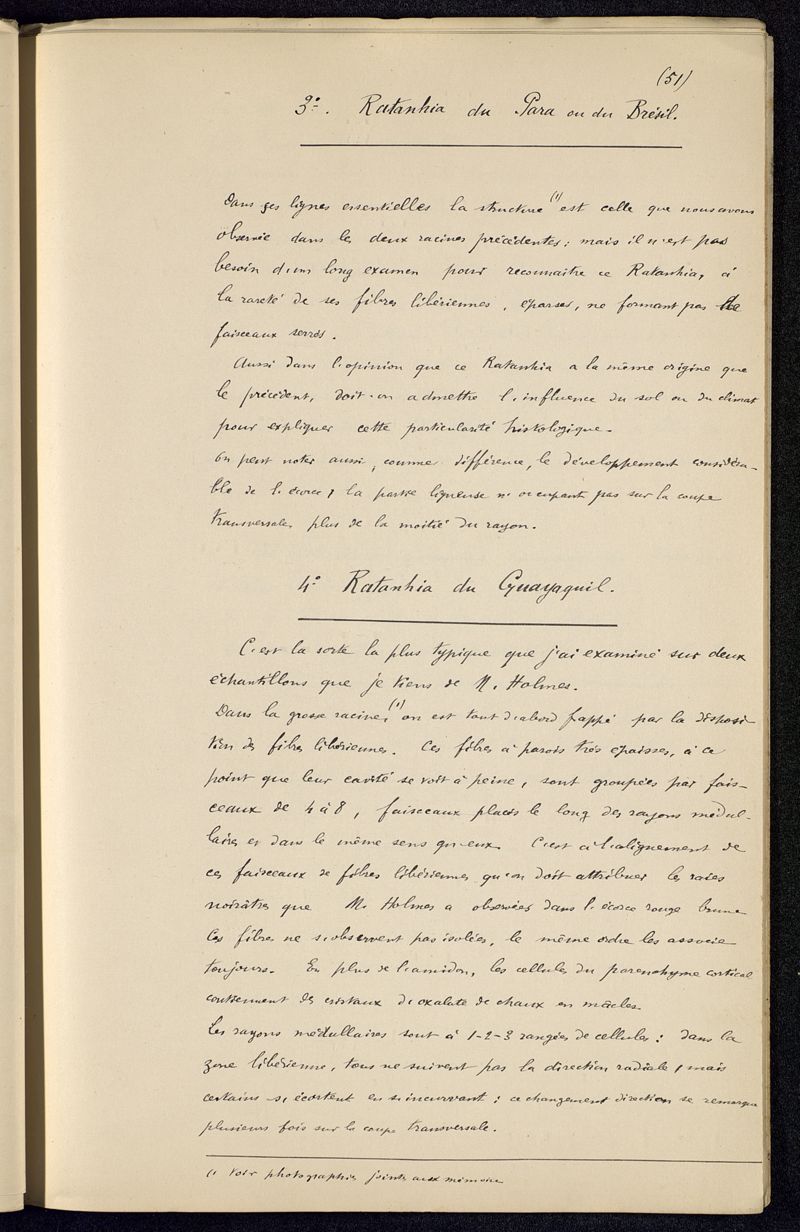 (51)
3°. Ratanhia du Para ou du Brésil.
Dans ses lignes essentielles la structure (1) est celle que nous avons
observée dans les deux racines précédentes; mais il n'est pas
besoin d'un long examen pour reconnaitre ce Ratanhia, à
la rareté de ses fibres libériennes, éparses, ne formant pas de
faisceaux serrés.
Aussi dans l'opinion que ce Ratanhia a la même origine que
le précédent, doit-on admettre l'influence du sol ou du climat
pour expliquer cette particularité histologique.
On peut noter aussi, comme différence, le développement considéra-
ble de l'écorce, la partie ligneuse n'occupant pas sur la coupe
transversale, plus de la moitié du rayon.
4° Ratanhia du Guayaquil.
C'est la sorte la plus typique que j'ai examiné sur deux
échantillons que je tiens de M. Holmes.
Dans la grosse racine, (1) on est tout d'abord frappé par la disposi-
tion des fibres libériennes. Ces fibres à parois très épaisses, à ce
point que leur cavité se voit à peine, sont groupées par fais-
ceaux de 4 à 8, faisceaux placés le long des rayons médul-
laires et dans le même sens qu'eux. C'est à l'alignement de
ces faisceaux de fibres libériennes qu'on doit attribuer les raies
noirâtres que M. Holmes a observées dans l'écorce rouge brune
Ces fibres ne s'observent pas isolées, le même ordre les associe
toujours. En plus de l'amidon, les cellules du parenchyme cortical
contiennent des cristaux d'oxalate de chaux en mâcles.
Les rayons médullaires sont à 1-2-3 rangées de cellules: dans la
zone libérienne, tous ne suivent pas la direction radiale, mais
certains s'écartent en s'incurvant; ce changement direction se remarque
plusieurs fois sur la coupe transversale.
(1 Voir photographies jointes aux mémoire